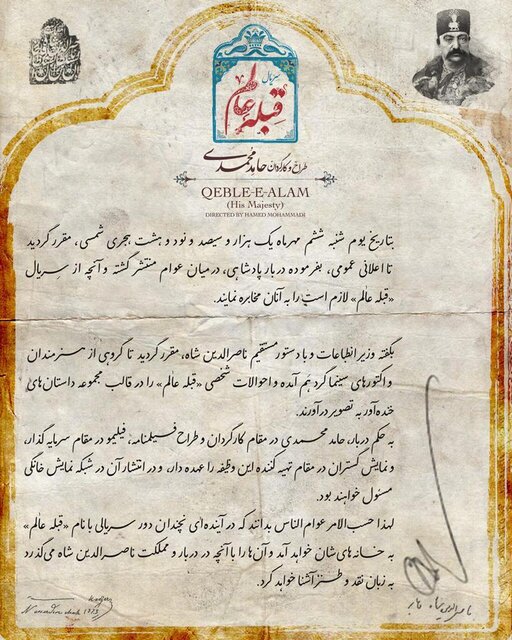 سریال
قبله عالم
طراح و کارگردان حامد محمدی
QEBLE-E-ALAM
(His Majesty)
DIRECTED BY HAMED MOHAMMADI
بتاریخ یوم شنبه ششم مهرماه یک هزار و سیصد و نود و هشت هجری شمسی، مقرر گردید
تا اعلانی عمومی، بفرموده دربار پادشاهی، در میان عوام منتشر گشته و آنچه از سریال
«قبله عالم» لازم است را به آنان مخابره نمایند.
بگفته وزیر انطباعات و با دستور مستقیم ناصرالدین شاه، مقرر گردید تا گروهی از هنرمندان
و اکتورهای سینما گرد هم آمده و احوالات شخصی «قبله عالم» را در قالب مجموعه داستان‌های
خنده‌آور به تصویر درآورند.
به حکم دربار، حامد محمدی در مقام کارگردان و طراح فیلمنامه، فیلیمو در مقام سرمایه گذار،
و نمایش گستران در مقام تهیه کننده این وظیفه را عهده دار، و در انتشار آن در شبکه نمایش خانگی
مسئول خواهند بود.
لهذا حسب الامر عوام الناس بدانند که در آینده‌ای نچندان دور سریالی با نام «قبله عالم»
به خانه‌های‌شان خواهد آمد و آن‌ها را با آنچه در دربار و مملکت ناصرالدین شاه می‌گذرد
به زبان نقد و طنز آشنا خواهد کرد.